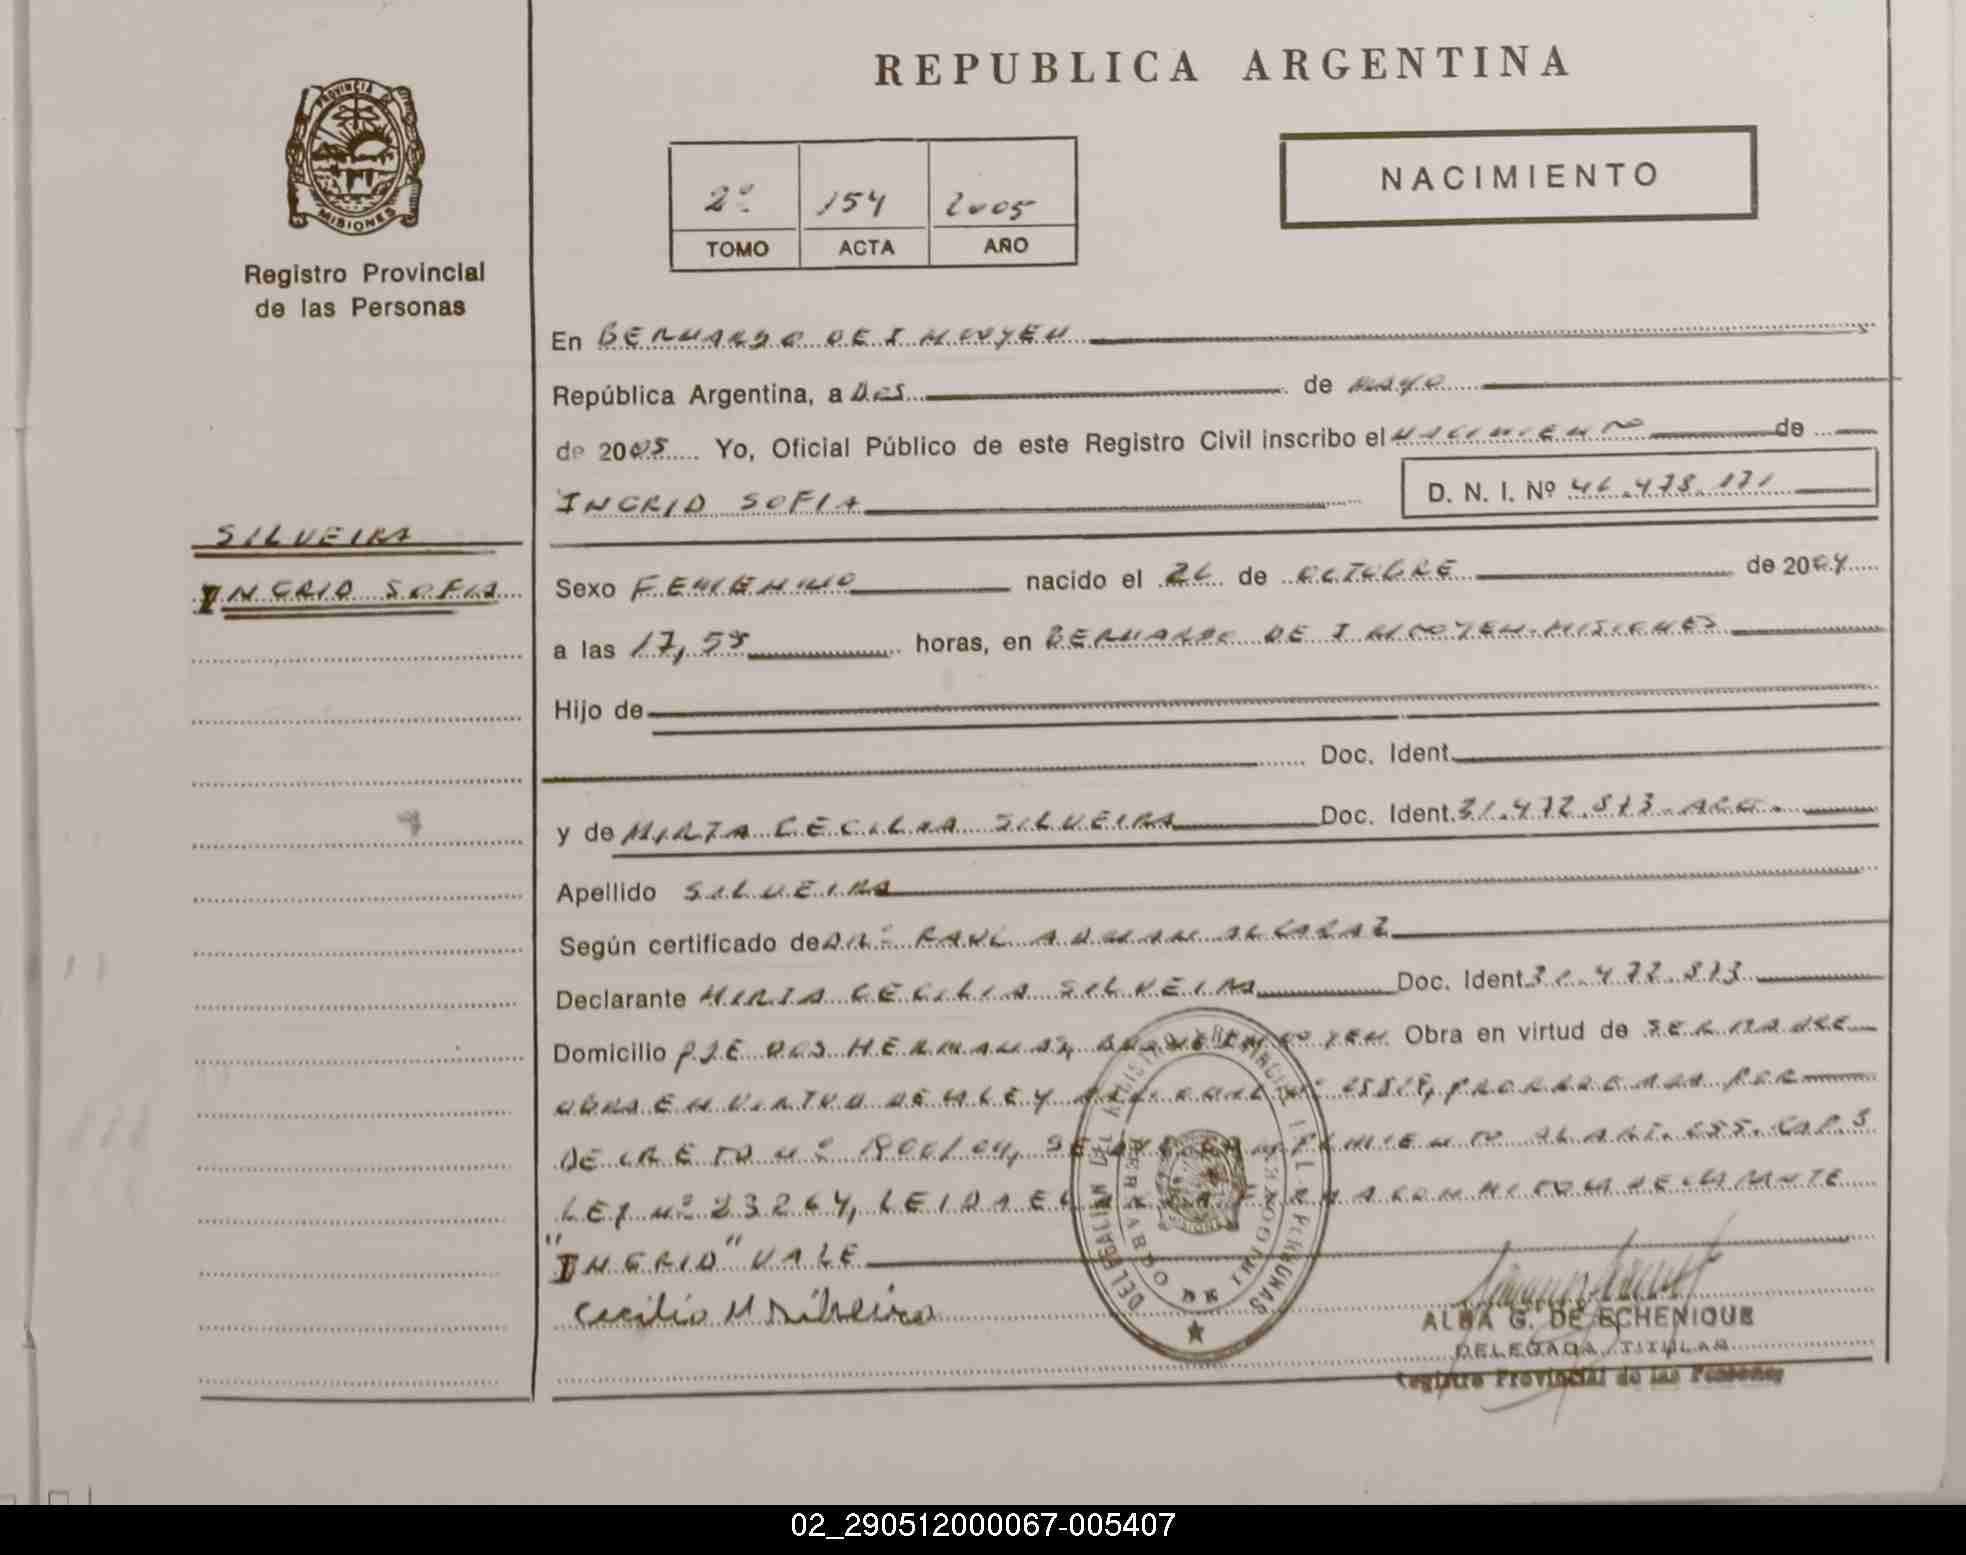 REPUBLICA ARGENTINA
PROVINCIA DE MISIONES
Registro Provincial
de las Personas
2º 154 2005
TOMO ACTA AÑO
NACIMIENTO
En BERNARDO DE IRIGOYEN
República Argentina, a DOS de MAYO
de 2005 Yo, Oficial Público de este Registro Civil inscribo el NACIMIENTO de
INGRID SOFIA D. N. I. Nº
SILVEIRA
INGRID SOFIA
Sexo FEMENINO nacido el de OCTUBRE de 2004
a las horas, en BERNARDO DE IRIGOYEN-MISIONES
Hijo de
Doc. Ident.
y de MIRTA CECILIA SILVEIRA Doc. Ident. ARG.
Apellido SILVEIRA
Según certificado de DR. RAUL ALCARAZ
Declarante MIRTA CECILIA SILVEIRA Doc. Ident.
Domicilio PJE DOS HERMANAS, Obra en virtud de SER MADRE
OBRA EN VIRTUD DE LA LEY PRORROGADA POR
DECRETO Nº AL ART. 255. CAP. 3
LEY Nº 23264, LEIDA EL ACTA FIRMA CONMIGO LA DECLARANTE
"INGRID" VALE
Cecilia M Silveira
DELEGACION DEL REGISTRO PROVINCIAL DE LAS PERSONAS
BERNARDO DE IRIGOYEN
ALBA G. DE ECHENIQUE
DELEGADA TITULAR
Registro Provincial de las Personas
02_290512000067-005407